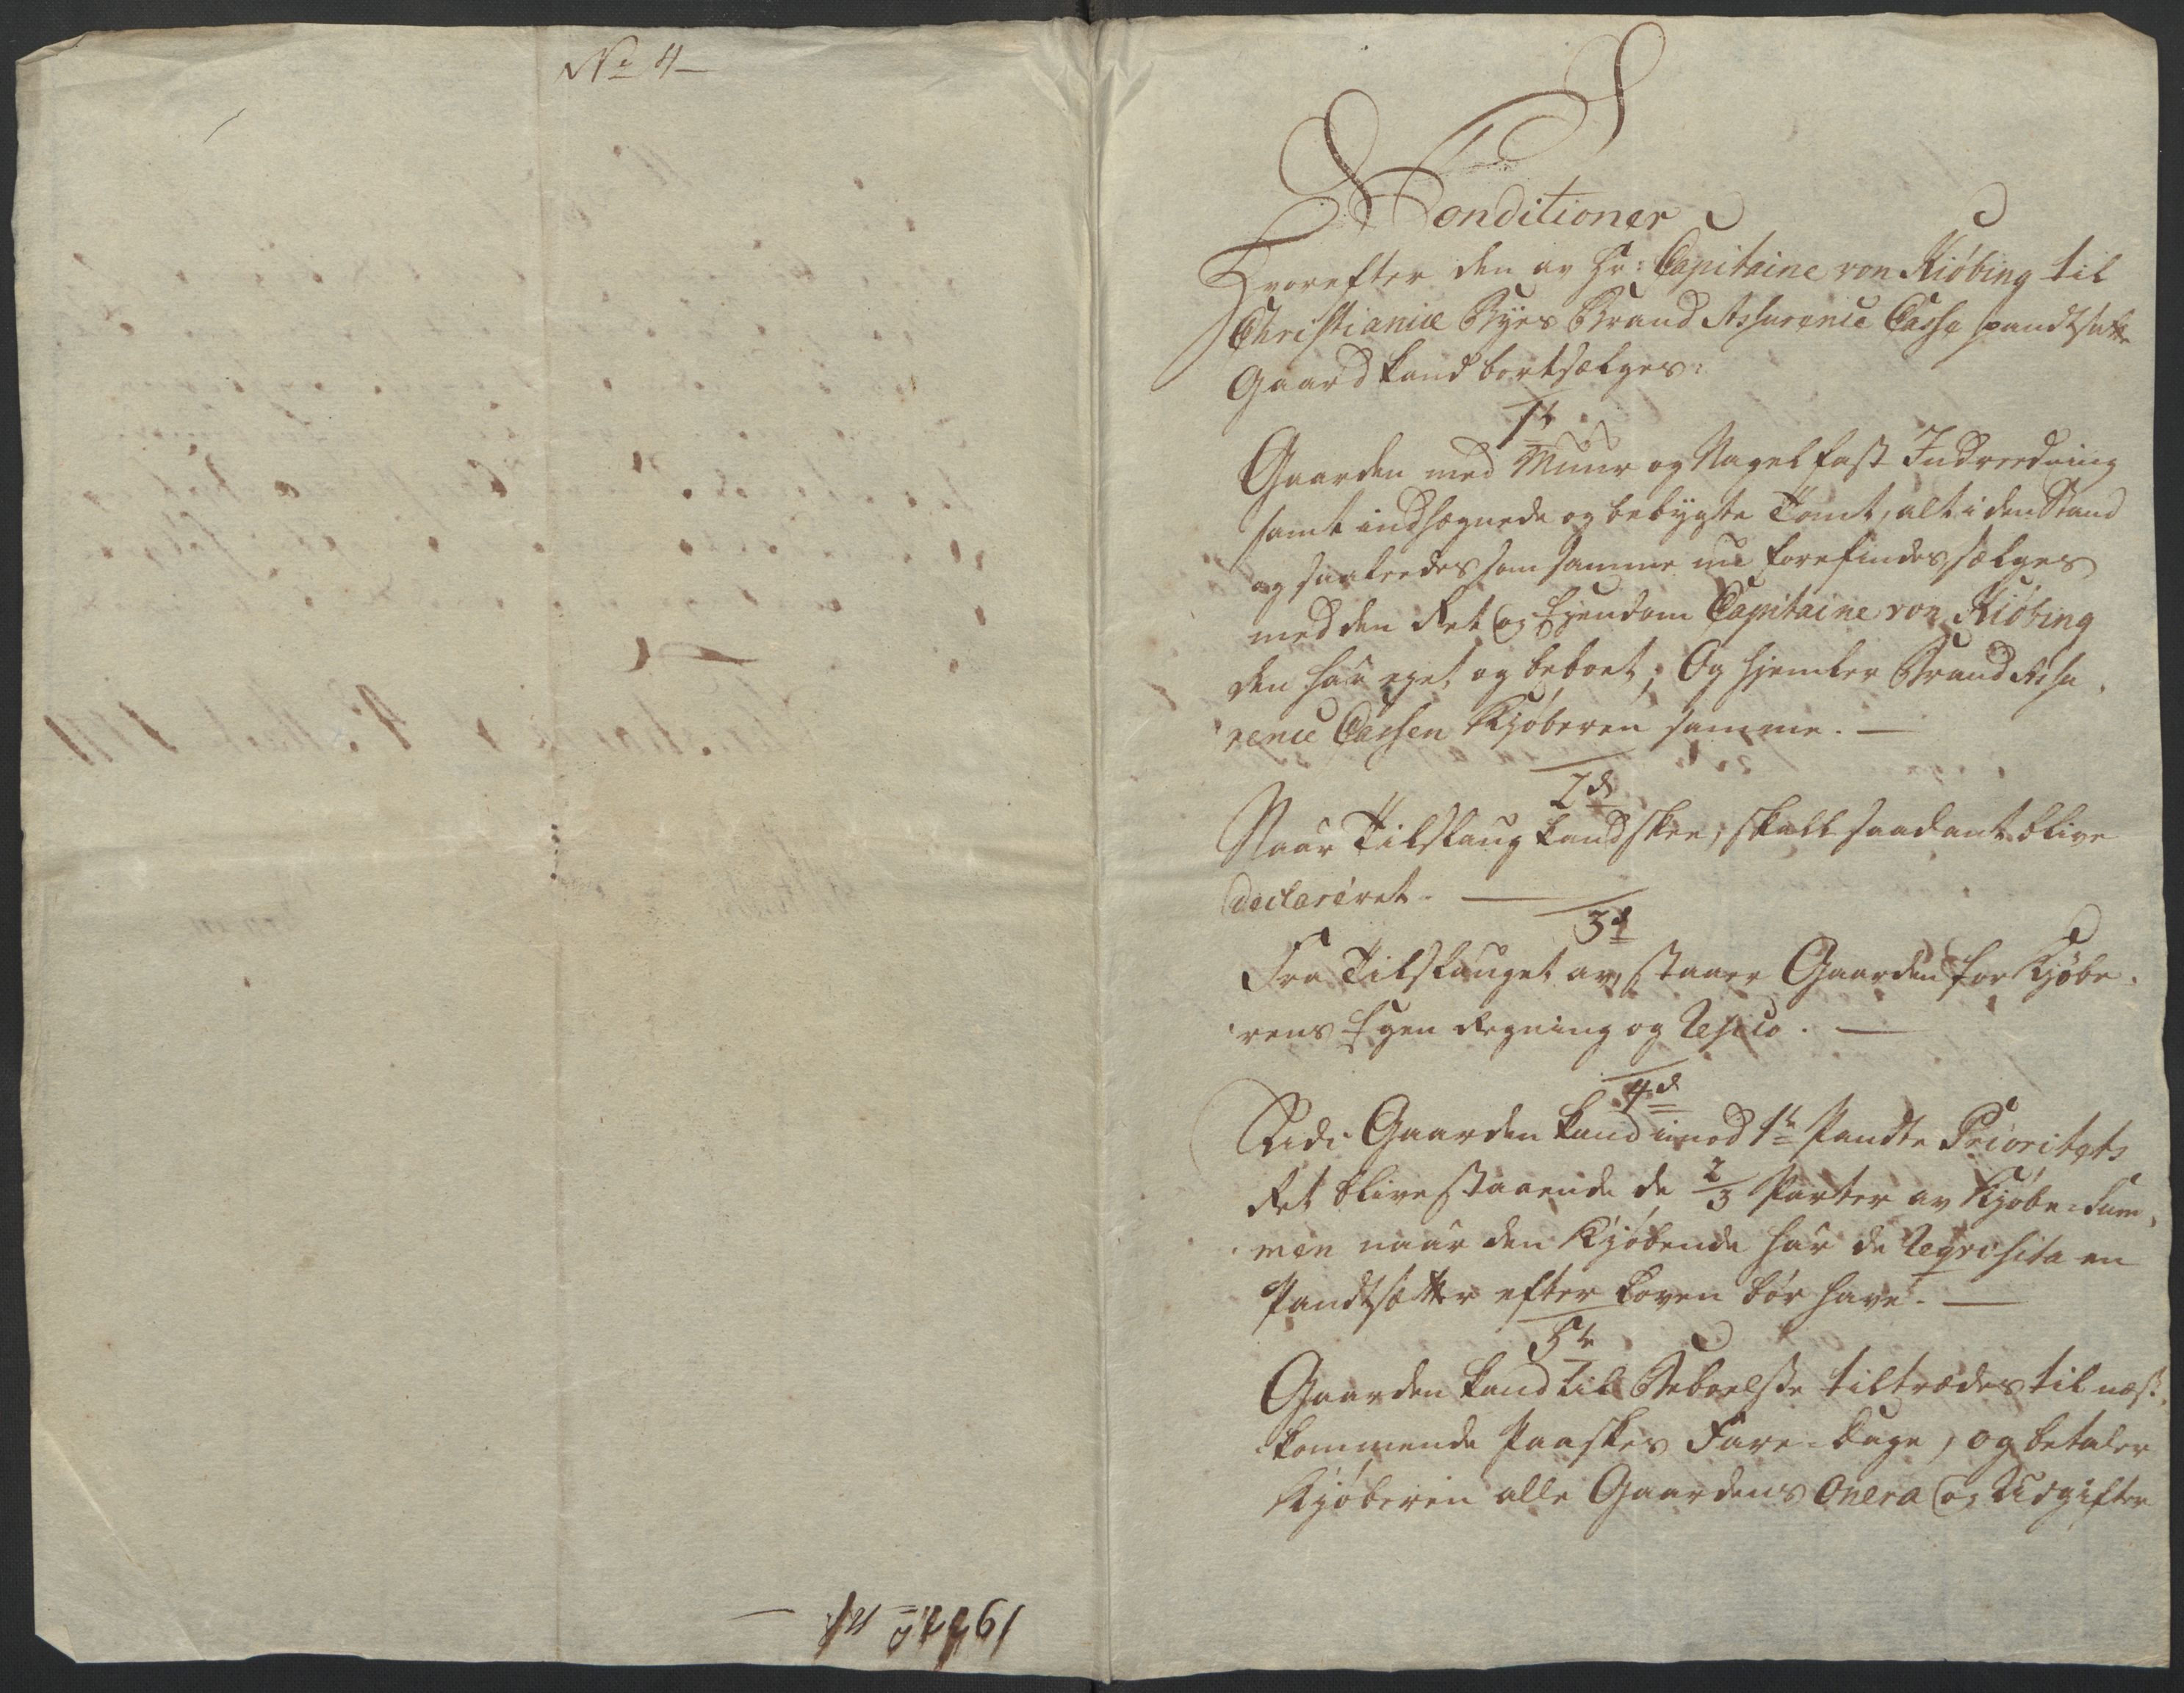 No 4
Conditioner
Hvorefter den av Hr: Capitaine von Kiøbing til
Christianiæ Byes Brand Assurence Casse pandtsatte
Gaard kand bortsælges:
1te
Gaarden med Muur og Nagelfast Indreedning
samt indhegnede og bebygte Tomt, alt i den Stand
og saaledes som samme nu forefindes, sælges
med den Ret og Eyendom Capitaine von Kiøbing
den har eyet og beboet; Og hjemler Brand Assu-
rence Cassen Kjøberen samme.
2d
Naar Tilslaug kand skee, skall saadant blive
declareret.
3d
Fra Tilslauget av, staaer Gaarden for Kjøbe-
rens Egen Regning og Resico.
4d
Udi Gaarden kand imod 1te Pandte Prioritets
Ret blive staaende de 2/3 Parter av Kjøbe-Sum-
men naar den Kjøbende har de Reqvisita en
Pandtsætter efter Loven bør have.
5te
Gaarden kand til Beboelse tiltrædes til næst-
kommende Paaskes Fare-Dage, og betaler
Kjøberen alle Gaardens Onera og Udgifter